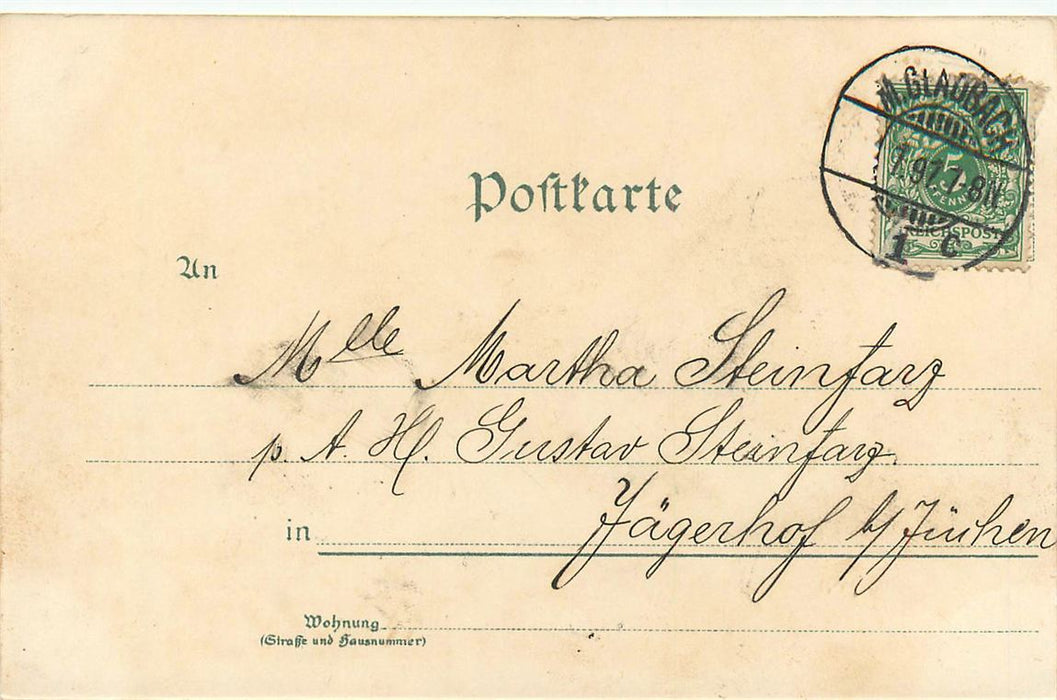 Postkarte
M. GLADBACH
7.97. 7-8N.
1 C
5
PFENNIG
REICHSPOST
An
Mlle Martha Steinfarz
p. A. H. Gustav Steinfarz
in Jägerhof b/Jüchen
Wohnung
(Straße und Hausnummer)